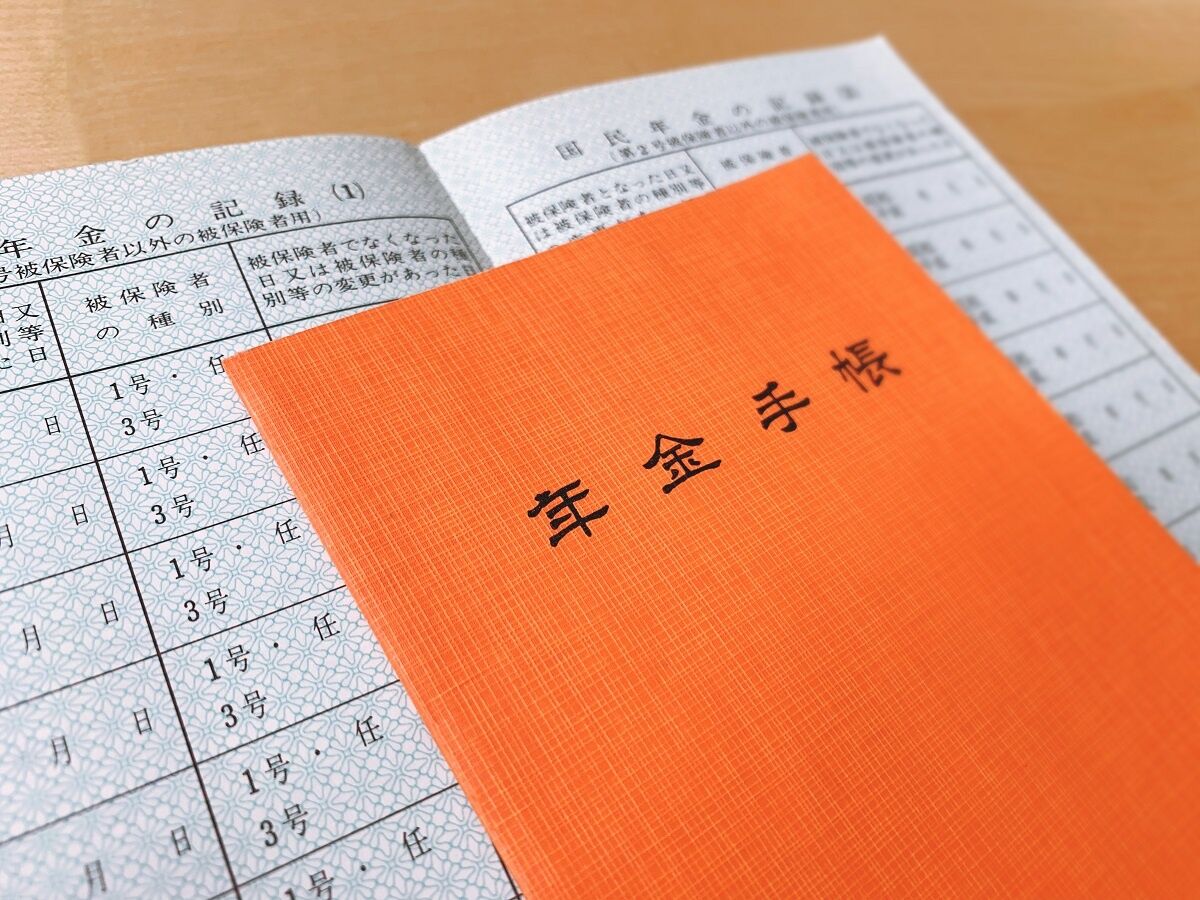 年金の記録(1)
号被保険者以外の被保険者用)
日又
別等
日
被保険者
の種別
被保険者でなくなった
日又は被保険者の種
別等の変更があった日
日
1号・任
3号
日
1号・任
3号
月 日
1号・任
3号
月 日
1号・任
3号
月 日
1号・任
3号
月 日
1号・任
国民年金の記録
(第2号被保険者以外の被保険者用)
被保険者となった日又
は被保険者の種別等
被保険者
年金手帳